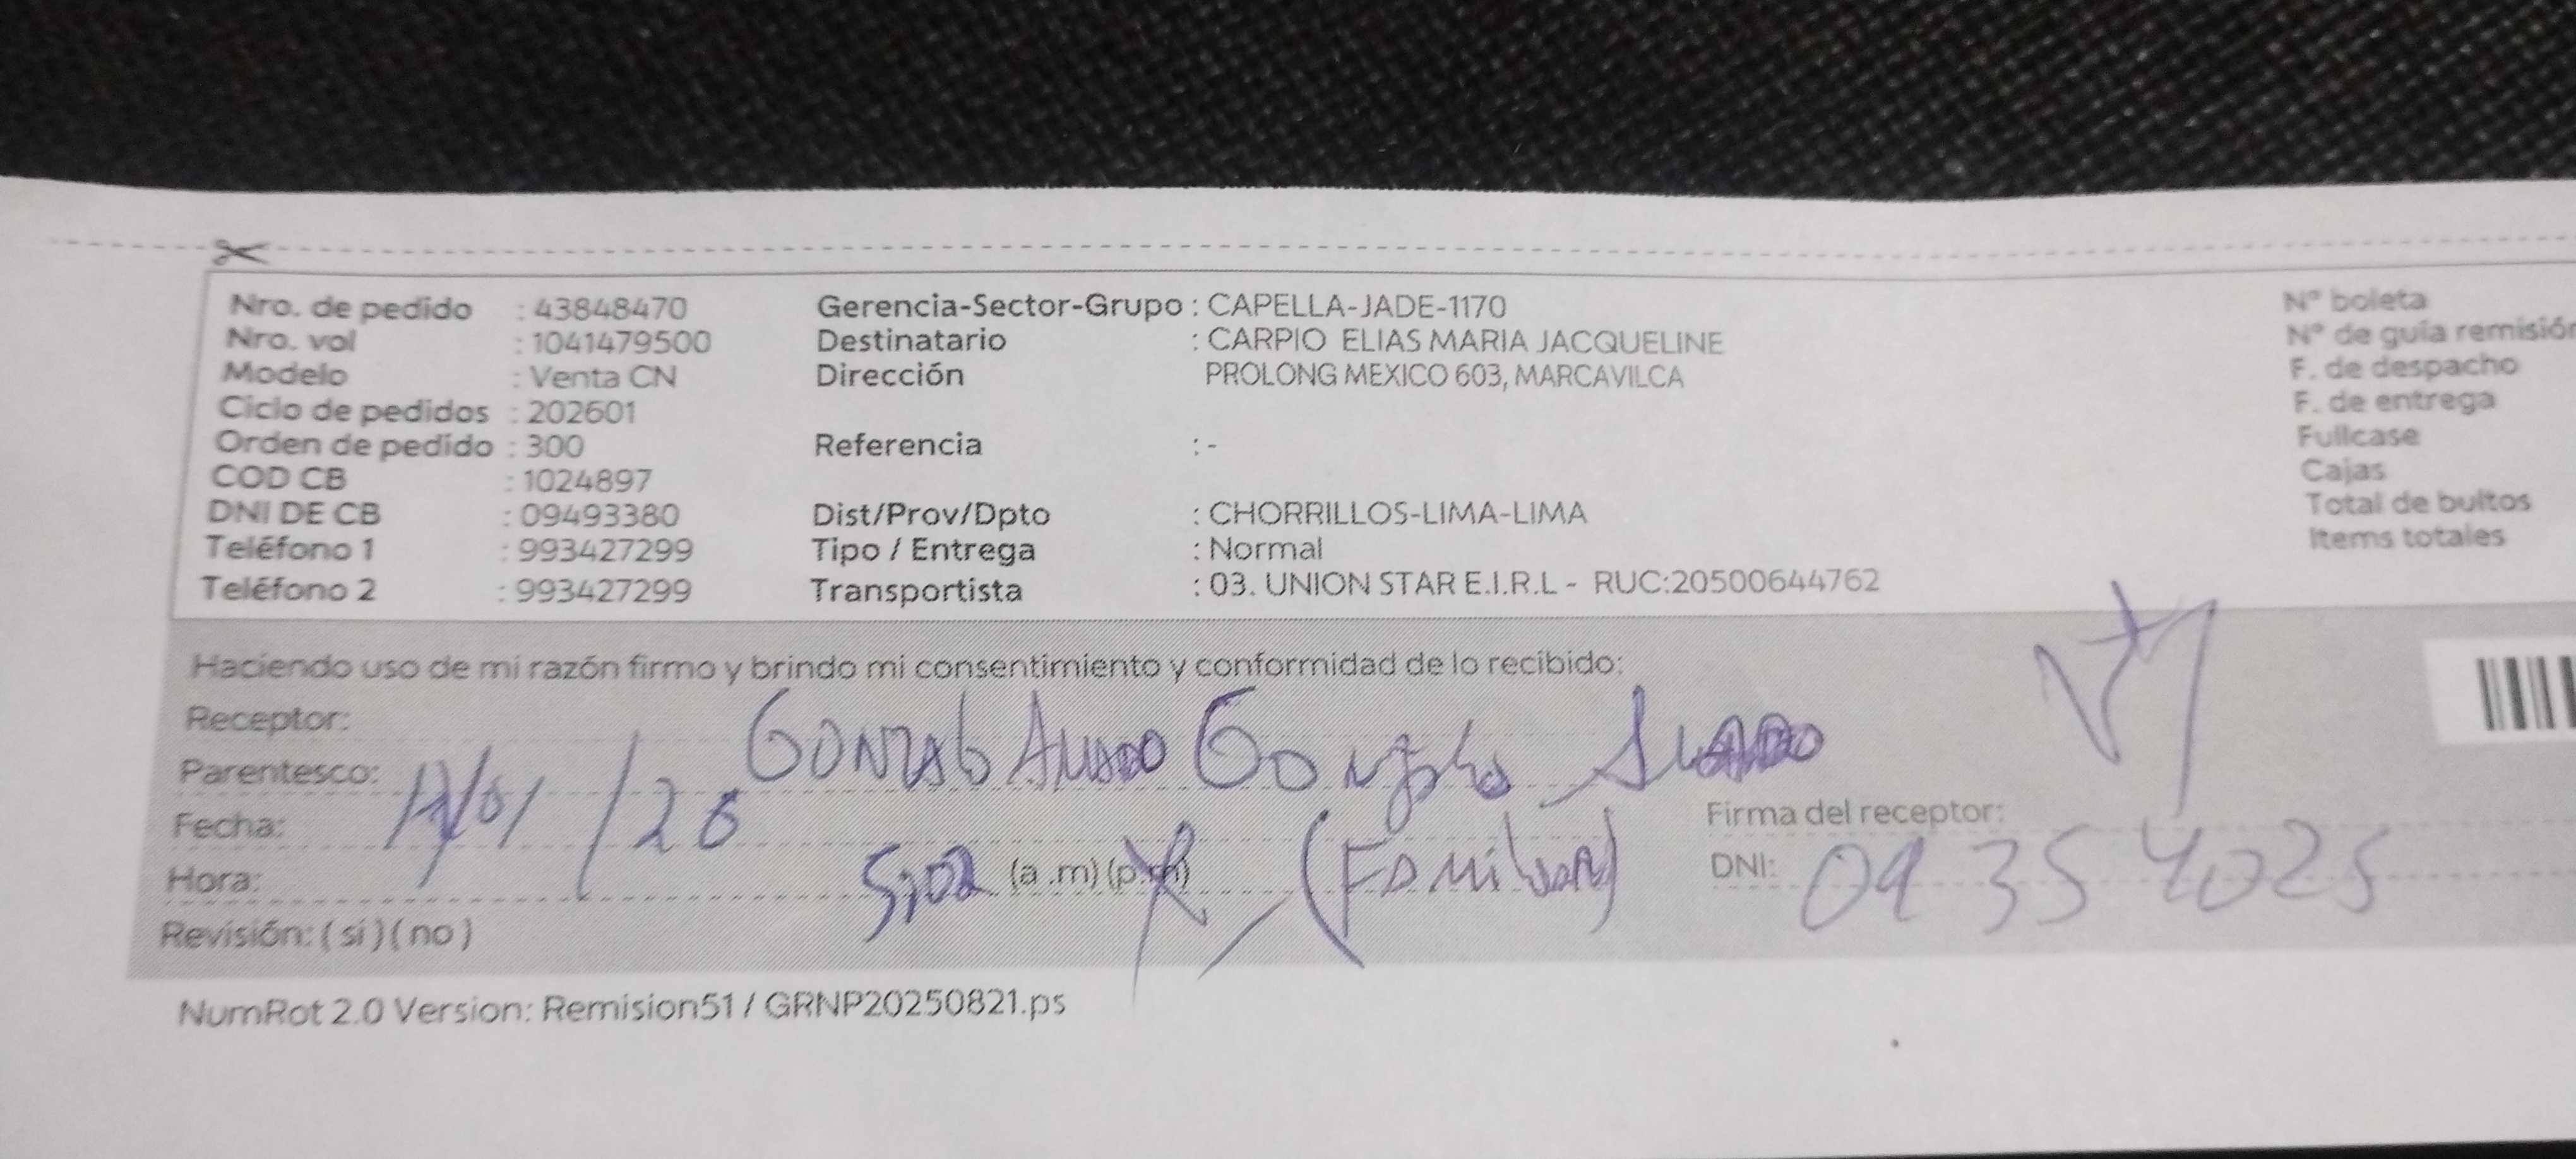 Nro. de pedido : 43848470 Gerencia-Sector-Grupo : CAPELLA-JADE-1170 N° boleta
Nro. vol : 1041479500 Destinatario : CARPIO ELIAS MARIA JACQUELINE N° de guía remisión
Modelo : Venta CN Dirección PROLONG MEXICO 603, MARCAVILCA F. de despacho
Ciclo de pedidos : 202601 F. de entrega
Orden de pedido : 300 Referencia : - Fullcase
COD CB : 1024897 Cajas
DNI DE CB : 09493380 Dist/Prov/Dpto : CHORRILLOS-LIMA-LIMA Total de bultos
Teléfono 1 : 993427299 Tipo / Entrega : Normal Items totales
Teléfono 2 : 993427299 Transportista : 03. UNION STAR E.I.R.L - RUC:20500644762
Haciendo uso de mi razón firmo y brindo mi consentimiento y conformidad de lo recibido:
Receptor:
Parentesco:
Fecha: /01/26 Firma del receptor:
Hora: (a .m) (p.m) (Familiar) DNI: 09354025
Revisión: ( sí ) ( no )
NumRot 2.0 Version: Remision51 / GRNP20250821.ps